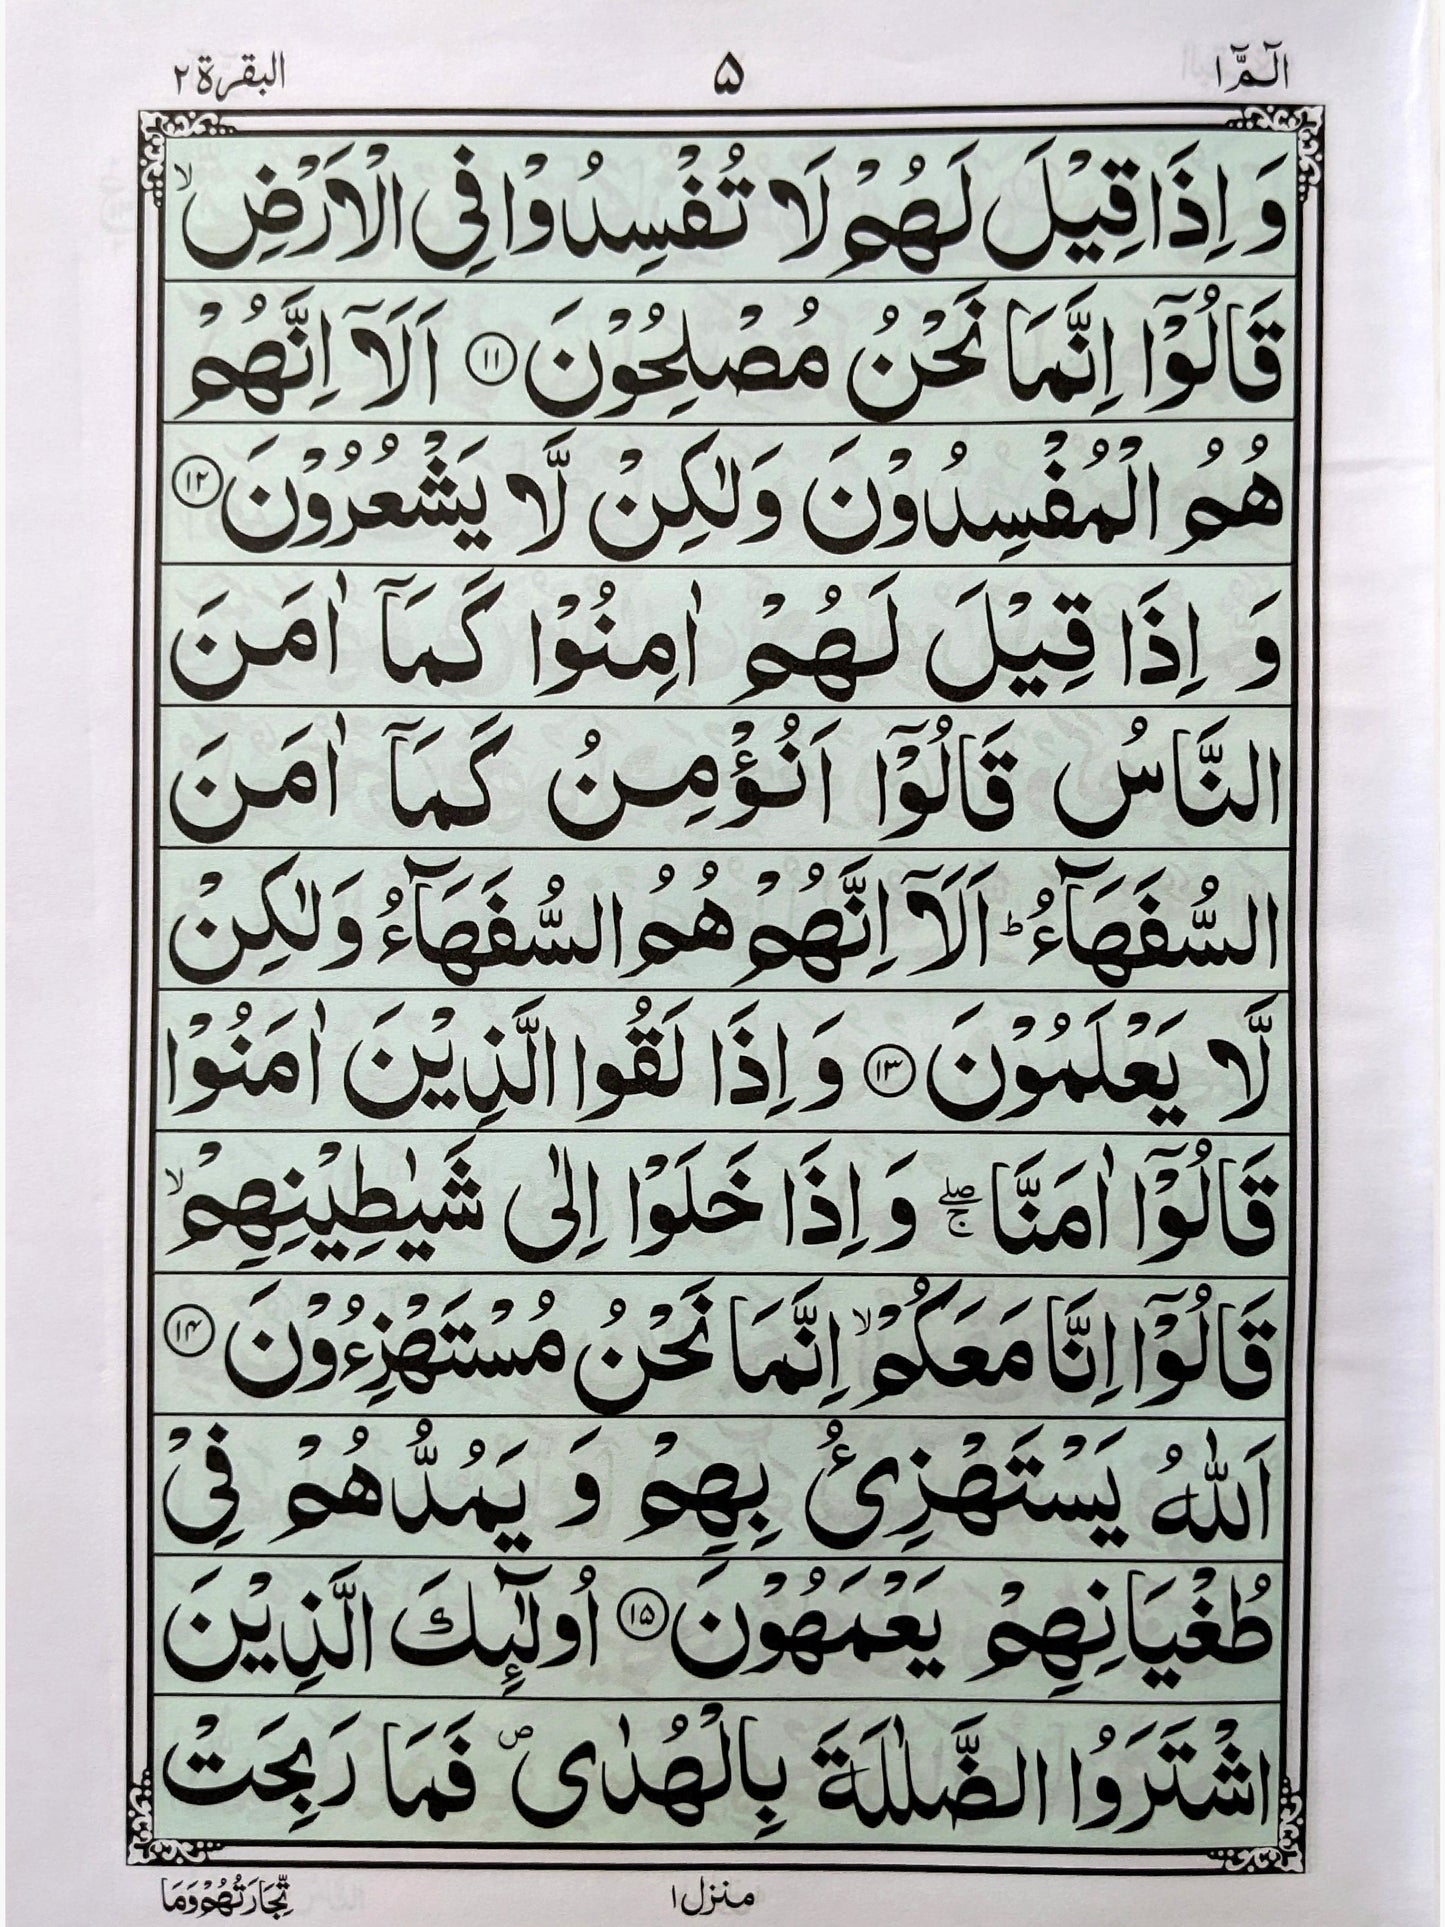 الٓمّٓ ١ ۵ البقرة ٢
وَ اِذَا قِيْلَ لَهُمْ لَا تُفْسِدُوْا فِى الْاَرْضِ ۙ
قَالُوْٓا اِنَّمَا نَحْنُ مُصْلِحُوْنَ ﴿۱۱﴾ اَلَآ اِنَّهُمْ
هُمُ الْمُفْسِدُوْنَ وَلٰكِنْ لَّا يَشْعُرُوْنَ ﴿۱۲﴾
وَ اِذَا قِيْلَ لَهُمْ اٰمِنُوْا كَمَآ اٰمَنَ
النَّاسُ قَالُوْٓا اَنُؤْمِنُ كَمَآ اٰمَنَ
السُّفَهَآءُ ؕ اَلَآ اِنَّهُمْ هُمُ السُّفَهَآءُ وَلٰكِنْ
لَّا يَعْلَمُوْنَ ﴿۱۳﴾ وَ اِذَا لَقُوا الَّذِيْنَ اٰمَنُوْا
قَالُوْٓا اٰمَنَّا ۖۚ وَ اِذَا خَلَوْا اِلٰى شَيٰطِيْنِهِمْ ۙ
قَالُوْٓا اِنَّا مَعَكُمْ ۙ اِنَّمَا نَحْنُ مُسْتَهْزِءُوْنَ ﴿۱۴﴾
اَللّٰهُ يَسْتَهْزِئُ بِهِمْ وَ يَمُدُّهُمْ فِىْ
طُغْيَانِهِمْ يَعْمَهُوْنَ ﴿۱۵﴾ اُولٰٓئِكَ الَّذِيْنَ
اشْتَرَوُا الضَّلٰلَةَ بِالْهُدٰى ۪ فَمَا رَبِحَتْ
منزل ١ تِّجَارَتُهُمْ وَمَا